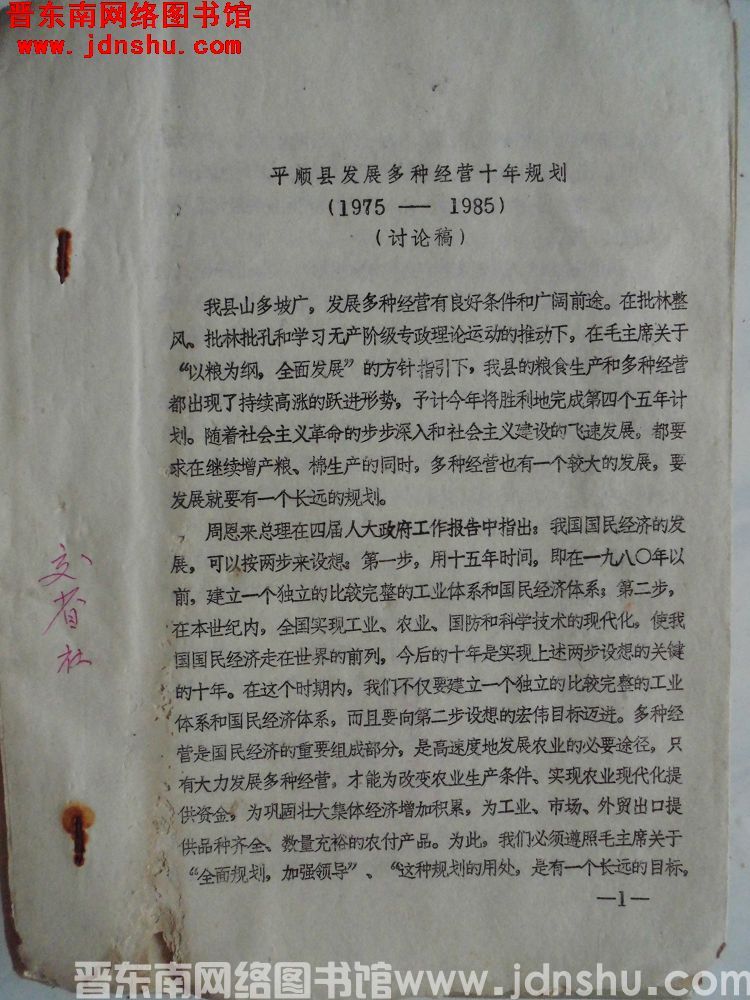 晋东南网络图书馆
www.jdnshu.com
平顺县发展多种经营十年规划
(1975 — 1985)
(讨论稿)
我县山多坡广，发展多种经营有良好条件和广阔前途。在批林整
风、批林批孔和学习无产阶级专政理论运动的推动下，在毛主席关于
“以粮为纲，全面发展”的方针指引下，我县的粮食生产和多种经营
都出现了持续高涨的跃进形势，予计今年将胜利地完成第四个五年计
划。随着社会主义革命的步步深入和社会主义建设的飞速发展，都要
求在继续增产粮、棉生产的同时，多种经营也有一个较大的发展，要
发展就要有一个长远的规划。
周恩来总理在四届人大政府工作报告中指出：我国国民经济的发
展，可以按两步来设想：第一步，用十五年时间，即在一九八〇年以
前，建立一个独立的比较完整的工业体系和国民经济体系；第二步，
在本世纪内，全国实现工业、农业、国防和科学技术的现代化，使我
国国民经济走在世界的前列，今后的十年是实现上述两步设想的关键
的十年。在这个时期内，我们不仅要建立一个独立的比较完整的工业
体系和国民经济体系，而且要向第二步设想的宏伟目标迈进。多种经
营是国民经济的重要组成部分，是高速度地发展农业的必要途径，只
有大力发展多种经营，才能为改变农业生产条件、实现农业现代化提
供资金，为巩固壮大集体经济增加积累，为工业、市场、外贸出口提
供品种齐全、数量充裕的农付产品。为此，我们必须遵照毛主席关于
“全面规划，加强领导”、“这种规划的用处，是有一个长远的目标，
—1—
交省社
晋东南网络图书馆www.jdnshu.com